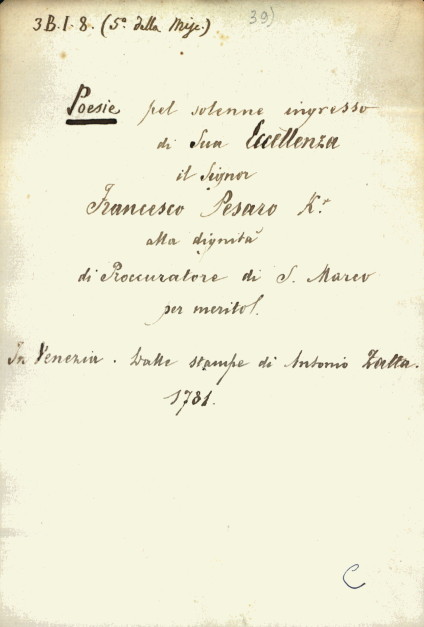 3 B. I. 8. (5ª della Misc.)
39)
Poesie pel solenne ingresso
di Sua Eccellenza
il Signor
Francesco Pesaro K.r
alla dignità
di Proccuratore di S. Marco
per merito.
In Venezia. Dalle stampe di Antonio Zatta.
1781.
C